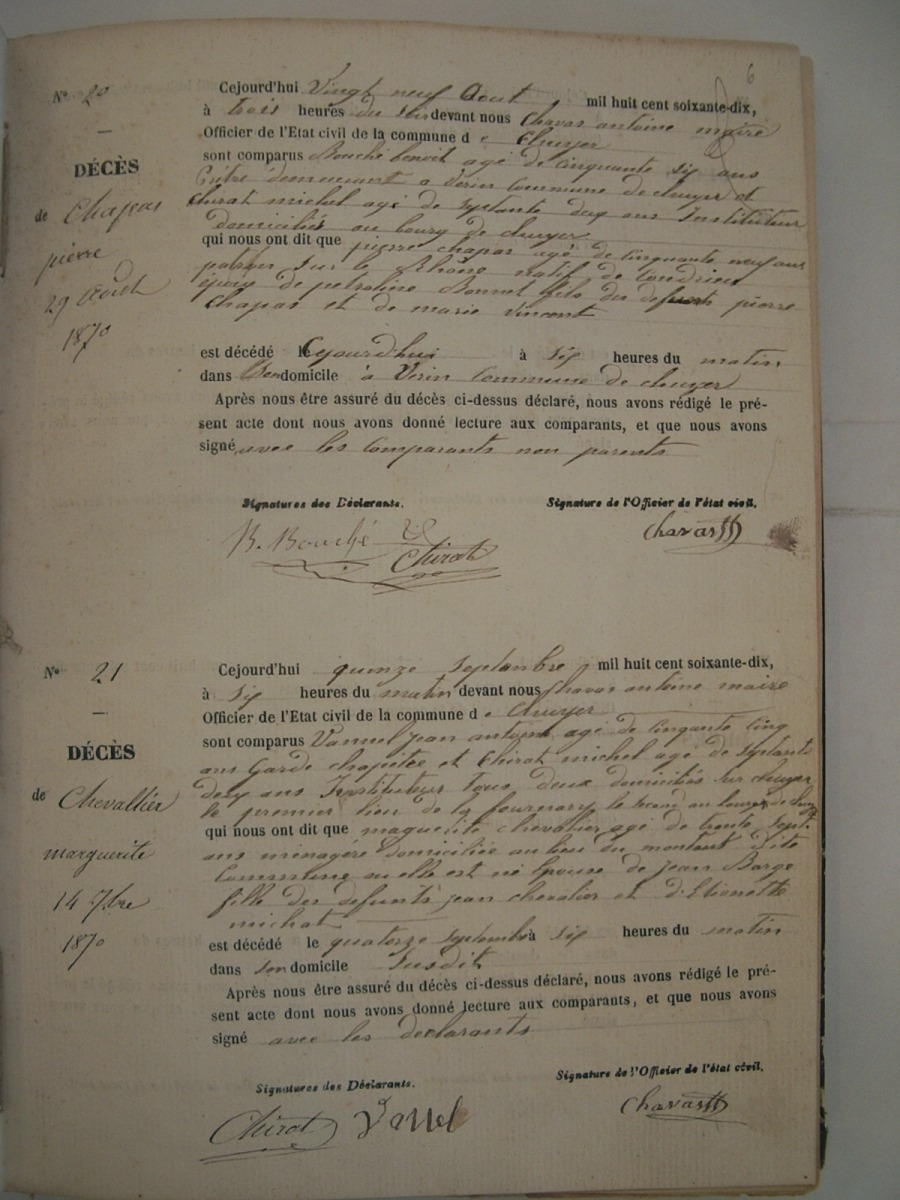 6
N° 20
DÉCÈS
de Chapas
pierre
29 Août
1870
Cejourd'hui Vingt neuf Aout, mil huit cent soixante-dix,
à trois heures du soir devant nous Chavas antoine maire
Officier de l'Etat civil de la commune d e Chuyer
sont comparus Bouché benoit agé de cinquante six ans
demeurant a Verin Commune de chuyer et
Chirat michel agé de septante deux ans Instituteur
domiciliés au bourg de chuyer
qui nous ont dit que pierre chapas agé de cinquante neuf ans
patron sur le Rhône natif de Condrieu
époux de Bonnet fils des defunts pierre
Chapas et de marie Vincent
est décédé le Cejourd'hui à six heures du matin
dans Son domicile à Verin Commune de chuyer
Après nous être assuré du décès ci-dessus déclaré, nous avons rédigé le pré-
sent acte dont nous avons donné lecture aux comparants, et que nous avons
signé avec les Comparants non parents
Signatures des Déclarants. Signature de l'Officier de l'état civil.
B. Bouché Chirat Chavas
N° 21
DÉCÈS
de Chevallier
marguerite
14 7bre
1870
Cejourd'hui quinze Septanbre, mil huit cent soixante-dix,
à six heures du matin devant nous Chavas antoine maire
Officier de l'Etat civil de la commune d e Chuyer
sont comparus Vannel jean antoine agé de cinquante cinq
ans Garde chapetre et Chirat michel agé de septante
deux ans Instituteur Tous deux domiciliés sur chuyer
le premier lieu de la le second au bourg de chuyer
qui nous ont dit que maguerite chevalier agé de trente sept
ans ménagére domiciliée au lieu du montant dite
Commune ou elle est né Epouse de jean Barge
fille des defunts jean chevalier et d'Etienette
michat
est décédé le quatorze septembre à six heures du matin
dans son domicile Susdit
Après nous être assuré du décès ci-dessus déclaré, nous avons rédigé le pré-
sent acte dont nous avons donné lecture aux comparants, et que nous avons
signé avec les declarants
Signatures des Déclarants. Signature de l'Officier de l'état civil.
Chirat Vannel Chavas